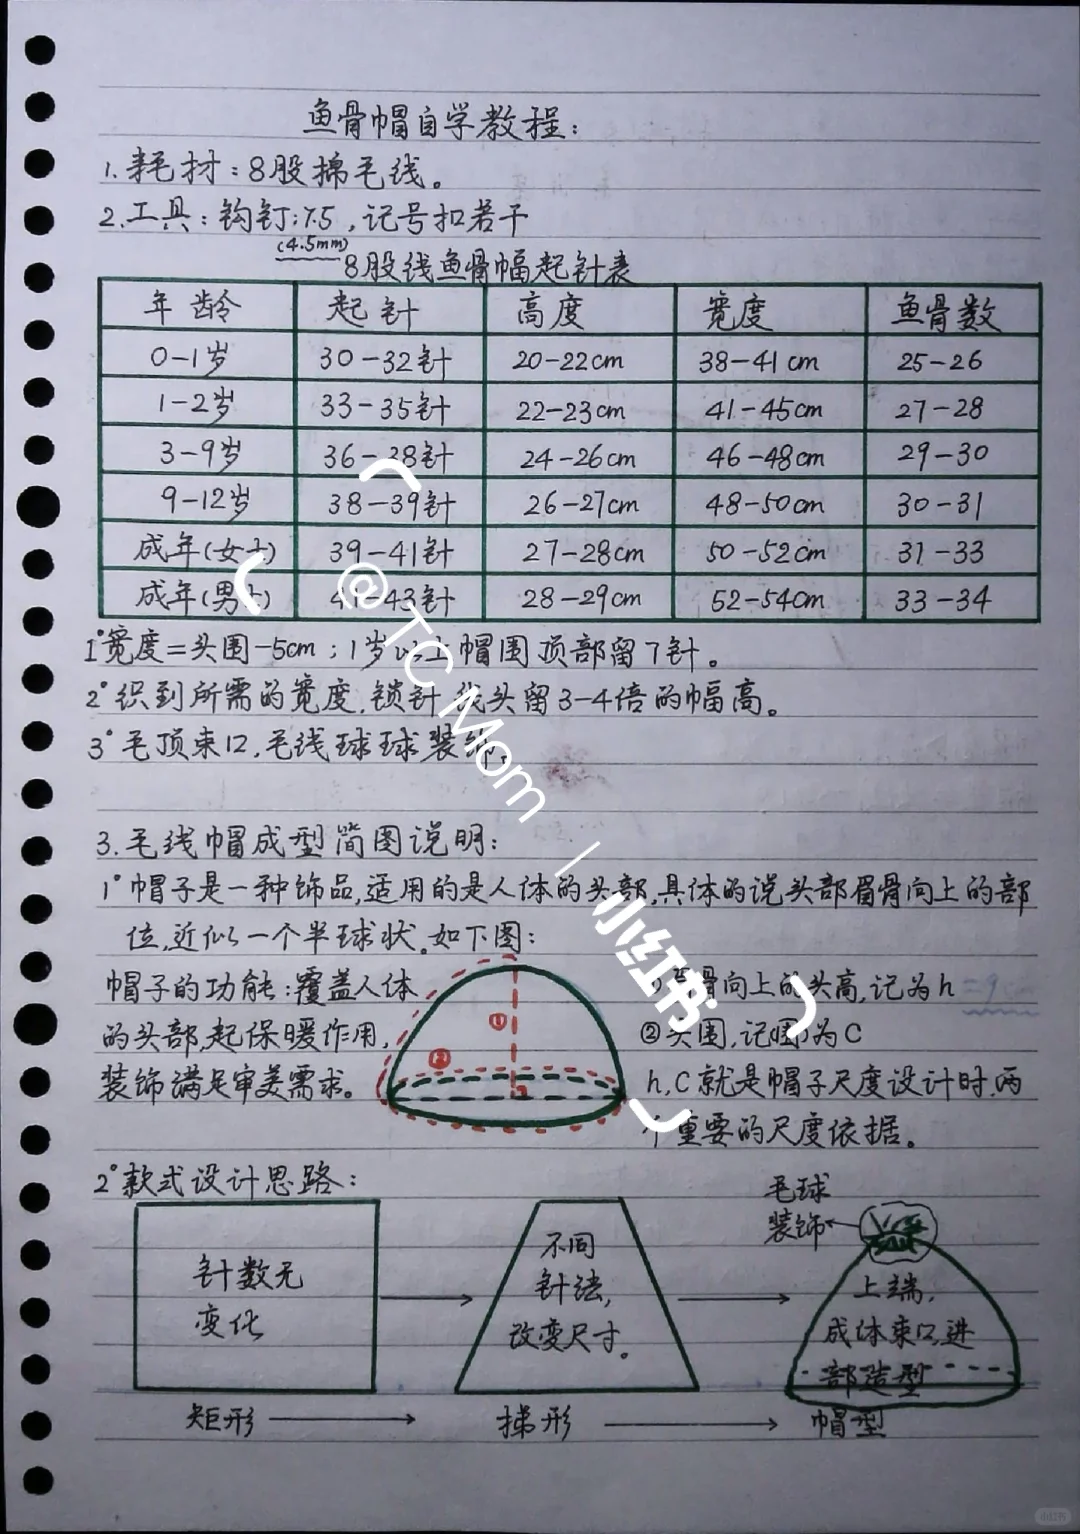 鱼骨帽自学教程:
1. 耗材:8股棉毛线。
2. 工具:钩钉:7.5,记号扣若干
(4.5mm)
8股线鱼骨帽起针表
年龄 起针 高度 宽度 鱼骨数
0-1岁 30-32针 20-22cm 38-41cm 25-26
1-2岁 33-35针 22-23cm 41-45cm 27-28
3-9岁 36-38针 24-26cm 46-48cm 29-30
9-12岁 38-39针 26-27cm 48-50cm 30-31
成年(女士) 39-41针 27-28cm 50-52cm 31-33
成年(男士) 41-43针 28-29cm 52-54cm 33-34
1°宽度=头围-5cm;1岁以上帽围顶部留7针。
2°织到所需的宽度,锁针,线头留3-4倍的帽高。
3°毛顶束口,毛线球球装饰。
3. 毛线帽成型简图说明:
1°帽子是一种饰品,适用的是人体的头部,具体的说头部眉骨向上的部
位,近似一个半球状。如下图:
帽子的功能:覆盖人体
的头部,起保暖作用,
装饰满足审美需求。
① ②
骨向上的头高,记为h
②头围,记为C
h,C就是帽子尺度设计时,两
个重要的尺度依据。
2°款式设计思路:
针数无
变化
不同
针法,
改变尺寸。
毛球
装饰
上端,
成体束口,进
部造型
矩形 梯形 帽型
@TC Mom
小红书
小红书